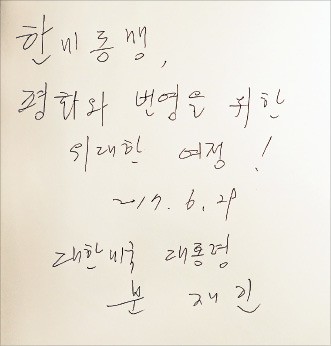 한미동맹,
평화와 번영을 위한
위대한 여정!
2017. 6. 28
대한미국 대통령
문 재 인